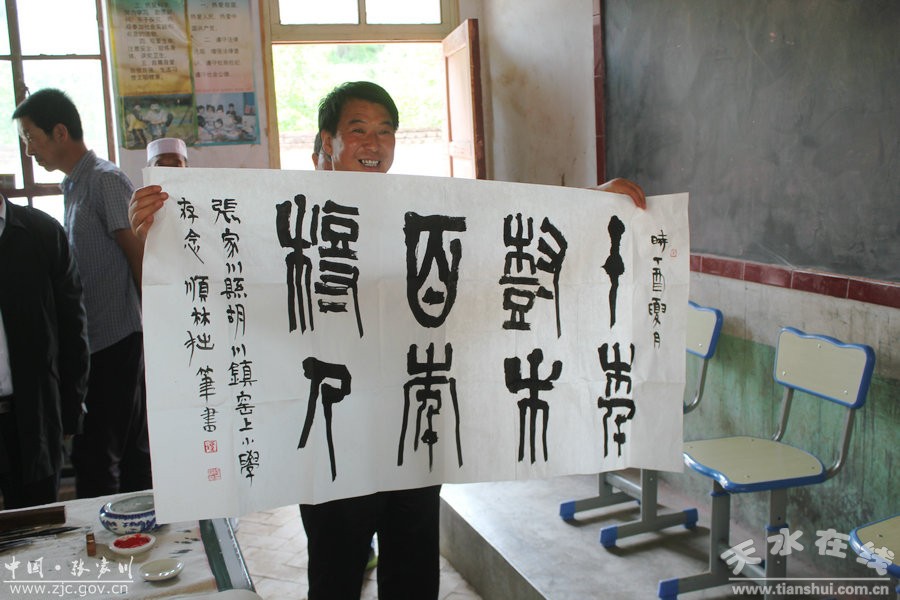 時丁酉夏月
十年
樹木
百年
樹人
張家川縣胡川鎮窑上小學
存念 順林拙筆書
中国·张家川
www.zjc.gov.cn
天水在线
www.tianshui.com.cn